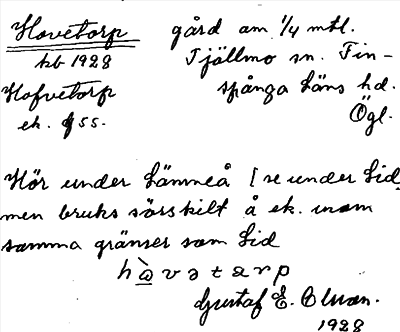 Hovetorp gård om 1/4 mtl.
kb 1928 Tjällmo sn. Fin-
Hofvetorp spånga läns hd.
ek. 55. Ögl.
Hör under Lämmeå [se under Lid,
men bruks särskilt å ek. inom
samma gränser som Lid
hòvətarp
Gustaf E.
1928